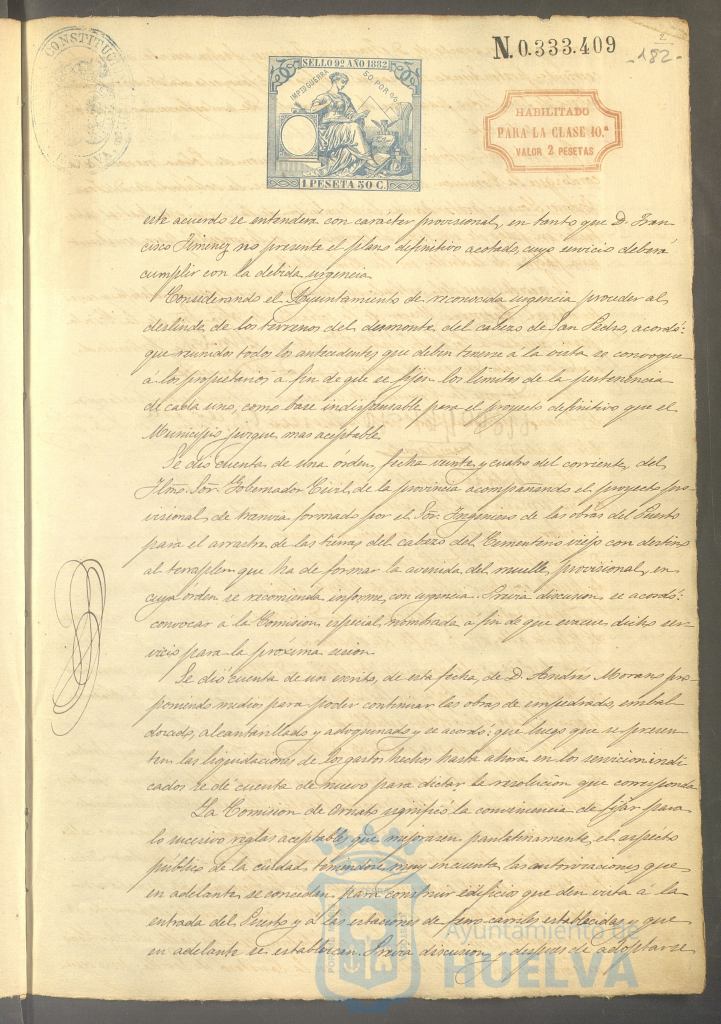 CONSTITUC
N.0.333.409
2
-182-
SELLO 9º AÑO 1882
IMPTO GUERRA 50 POR %
1 PESETA 50 C.
HABILITADO
PARA LA CLASE 10.ª
VALOR 2 PESETAS
este acuerdo se entenderá con carácter provisional, en tanto que D. Fran-
cisco Jimenez no presente el plano definitivo acotado, cuyo servicio deberá
cumplir con la debida urgencia.
Considerando el Ayuntamiento de reconocida urgencia proceder al
deslinde de los terrenos del desmonte del cabezo de San Pedro, acordó:
que reunidos todos los antecedentes que deben tenerse á la vista se convoque
á los propietarios á fin de que se fijen los límites de la pertenencia
de cada uno, como base indispensable para el proyecto definitivo que el
Municipio juzgue mas aceptable.
Se dió cuenta de una órden, fecha veinte y cuatro del corriente, del
Iltmo. Sor. Gobernador Civil de la provincia acompañando el proyecto pro-
visional de tranvia formado por el Sor. Ingeniero de las obras del Puerto
para el arrastre de las tierras del cabezo del Cementerio viejo con destino
al terraplen que ha de formar la avenida del muelle provisional, en
cuya orden se recomienda informe con urgencia. Previa discusion se acordó:
convocar a la Comision especial nombrada á fin de que evacue dicho ser-
vicio para la proxima sesion.
Se dió cuenta de un escrito, de esta fecha, de D. Andrés Morano pro-
poniendo medios para poder continuar las obras de empedrado, embal-
dosado, alcantarillado y adoquinado y se acordó: que luego que se presen-
ten las liquidaciones de los gastos hechos hasta ahora en los servicios indi-
cados se dé cuenta de nuevo para dictar la resolucion que corresponda.
La Comision de Ornato significó la conveniencia de fijar para
lo sucesivo reglas aceptables que mejorasen paulatinamente el aspecto
público de la ciudad, teniendose muy en cuenta las autorizaciones que
en adelante se concedan para construir edificios que den vista á la
entrada del Puerto y á las estaciones de ferro-carriles establecidas y que
en adelante se establezcan. Previa discusion y despues de adoptarse
Ayuntamiento de
HUELVA